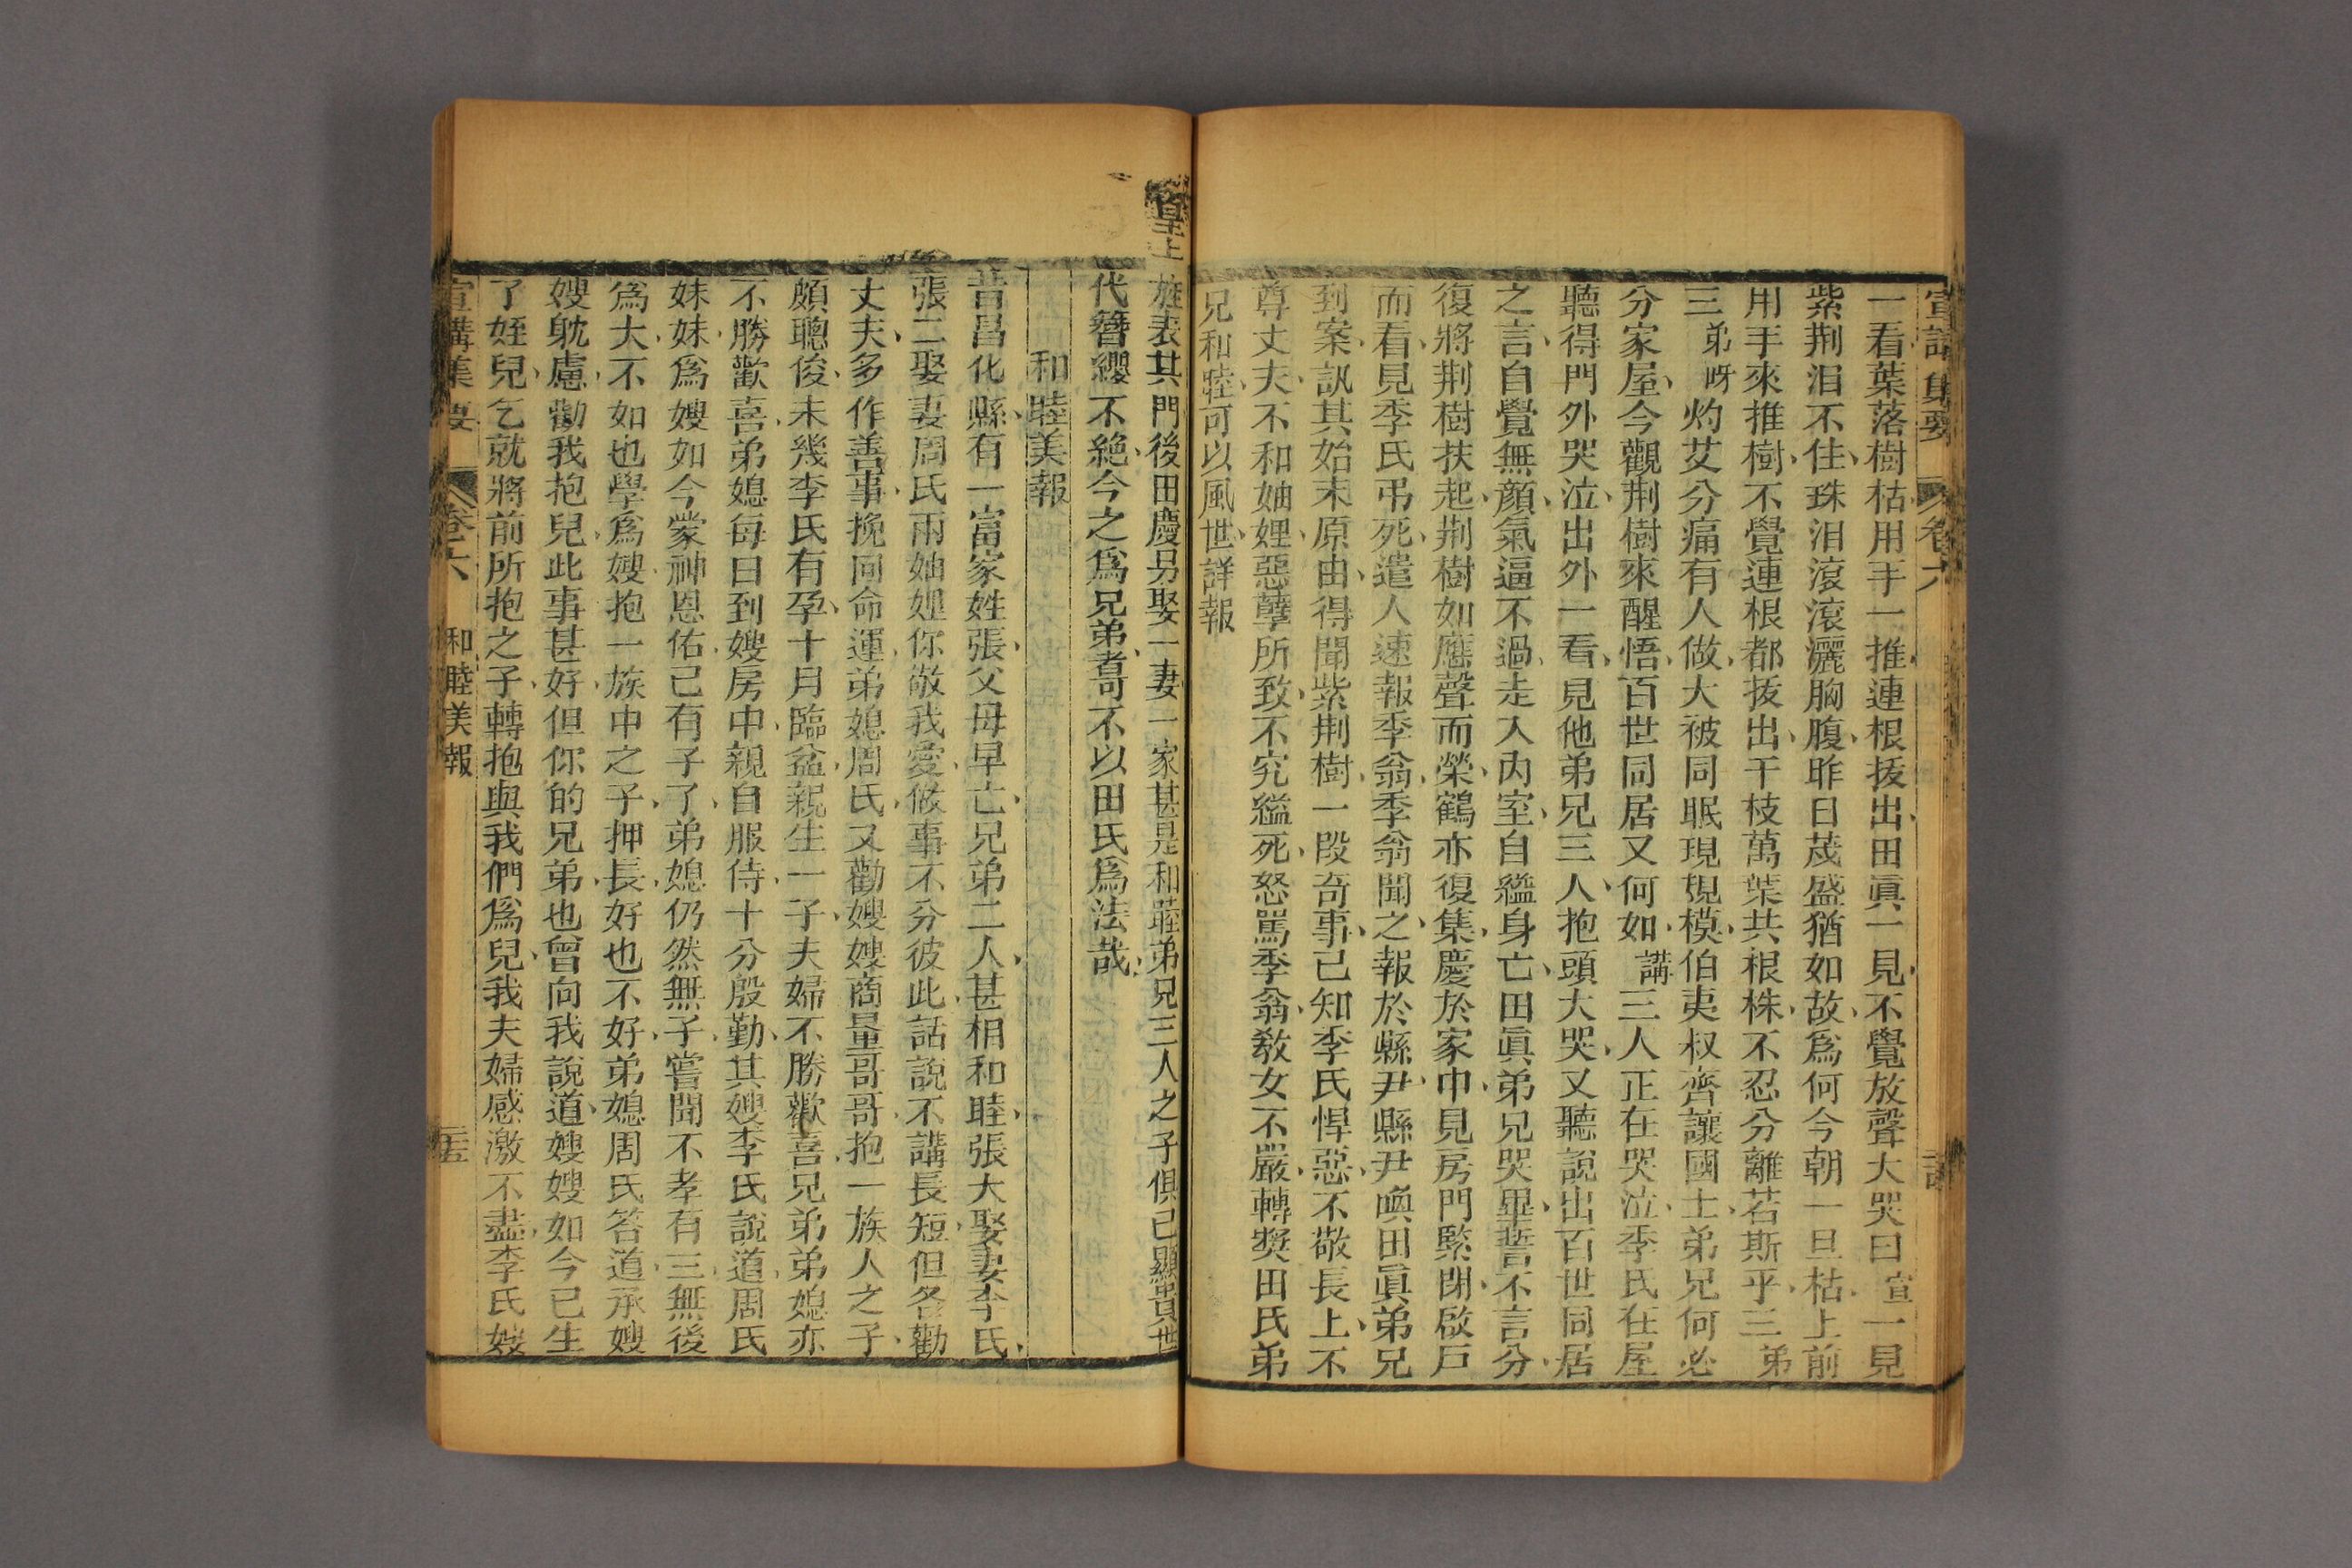 宣講集要 卷六
一看葉落樹枯用手一推連根拔出田眞一見不覺放聲大哭曰宣一見
紫荆泪不住珠泪滾滾灑胸腹昨日茂盛猶如故爲何今朝一旦枯上前
用手來推樹不覺連根都拔出干枝萬葉共根株不忍分離若斯乎三弟
三弟呀灼艾分痛有人做大被同眠現規模伯夷叔齊讓國土弟兄何必
分家屋今觀荆樹來醒悟百世同居又何如講三人正在哭泣季氏在屋
聽得門外哭泣出外一看見他弟兄三人抱頭大哭又聽說出百世同居
之言自覺無顔氣逼不過走入內室自縊身亡田眞弟兄哭畢誓不言分
復將荆樹扶起荆樹如應聲而榮鶴亦復集慶於家中見房門緊閉啟戶
而看見季氏弔死遣人速報季翁季翁聞之報於縣尹縣尹喚田眞弟兄
到案訊其始末原由得聞紫荆樹一段奇事已知季氏悍惡不敬長上不
尊丈夫不和妯娌惡孽所致不究縊死怒罵季翁教女不嚴轉獎田氏弟
兄和睦可以風世詳報
皇上旌表其門後田慶另娶一妻一家甚是和睦弟兄三人之子俱已顯貴世
代簪纓不絶今之爲兄弟者哥不以田氏爲法哉
和睦美報
昔昌化縣有一富家姓張父母早亡兄弟二人甚相和睦張大娶妻李氏
張二娶妻周氏兩妯娌你敬我愛做事不分彼此話說不講長短但各勸
丈夫多作善事挽回命運弟媳周氏又勸嫂嫂商量哥哥抱一族人之子
頗聰俊未幾李氏有孕十月臨盆親生一子夫婦不勝歡喜兄弟弟媳亦
不勝歡喜弟媳每日到嫂房中親自服侍十分殷勤其嫂李氏說道周氏
妹妹爲嫂如今蒙神恩佑己有子了弟媳仍然無子嘗聞不孝有三無後
爲大不如也學爲嫂抱一族中之子押長好也不好弟媳周氏答道承嫂
嫂躭慮勸我抱兒此事甚好但你的兄弟也曾向我說道嫂嫂如今已生
了姪兒乞就將前所抱之子轉抱與我們爲兒我夫婦感激不盡李氏嫂
宣講集要 卷六 和睦美報 二五